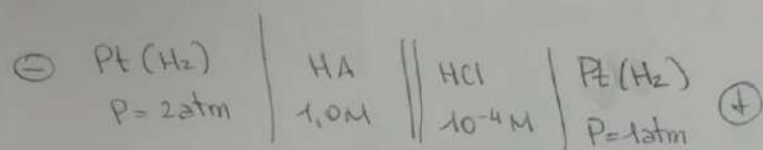 ⊖ Pt (H₂) | HA || HCl | Pt (H₂) ⊕
P = 2atm | 1,0M || 10⁻⁴M | P = 1atm